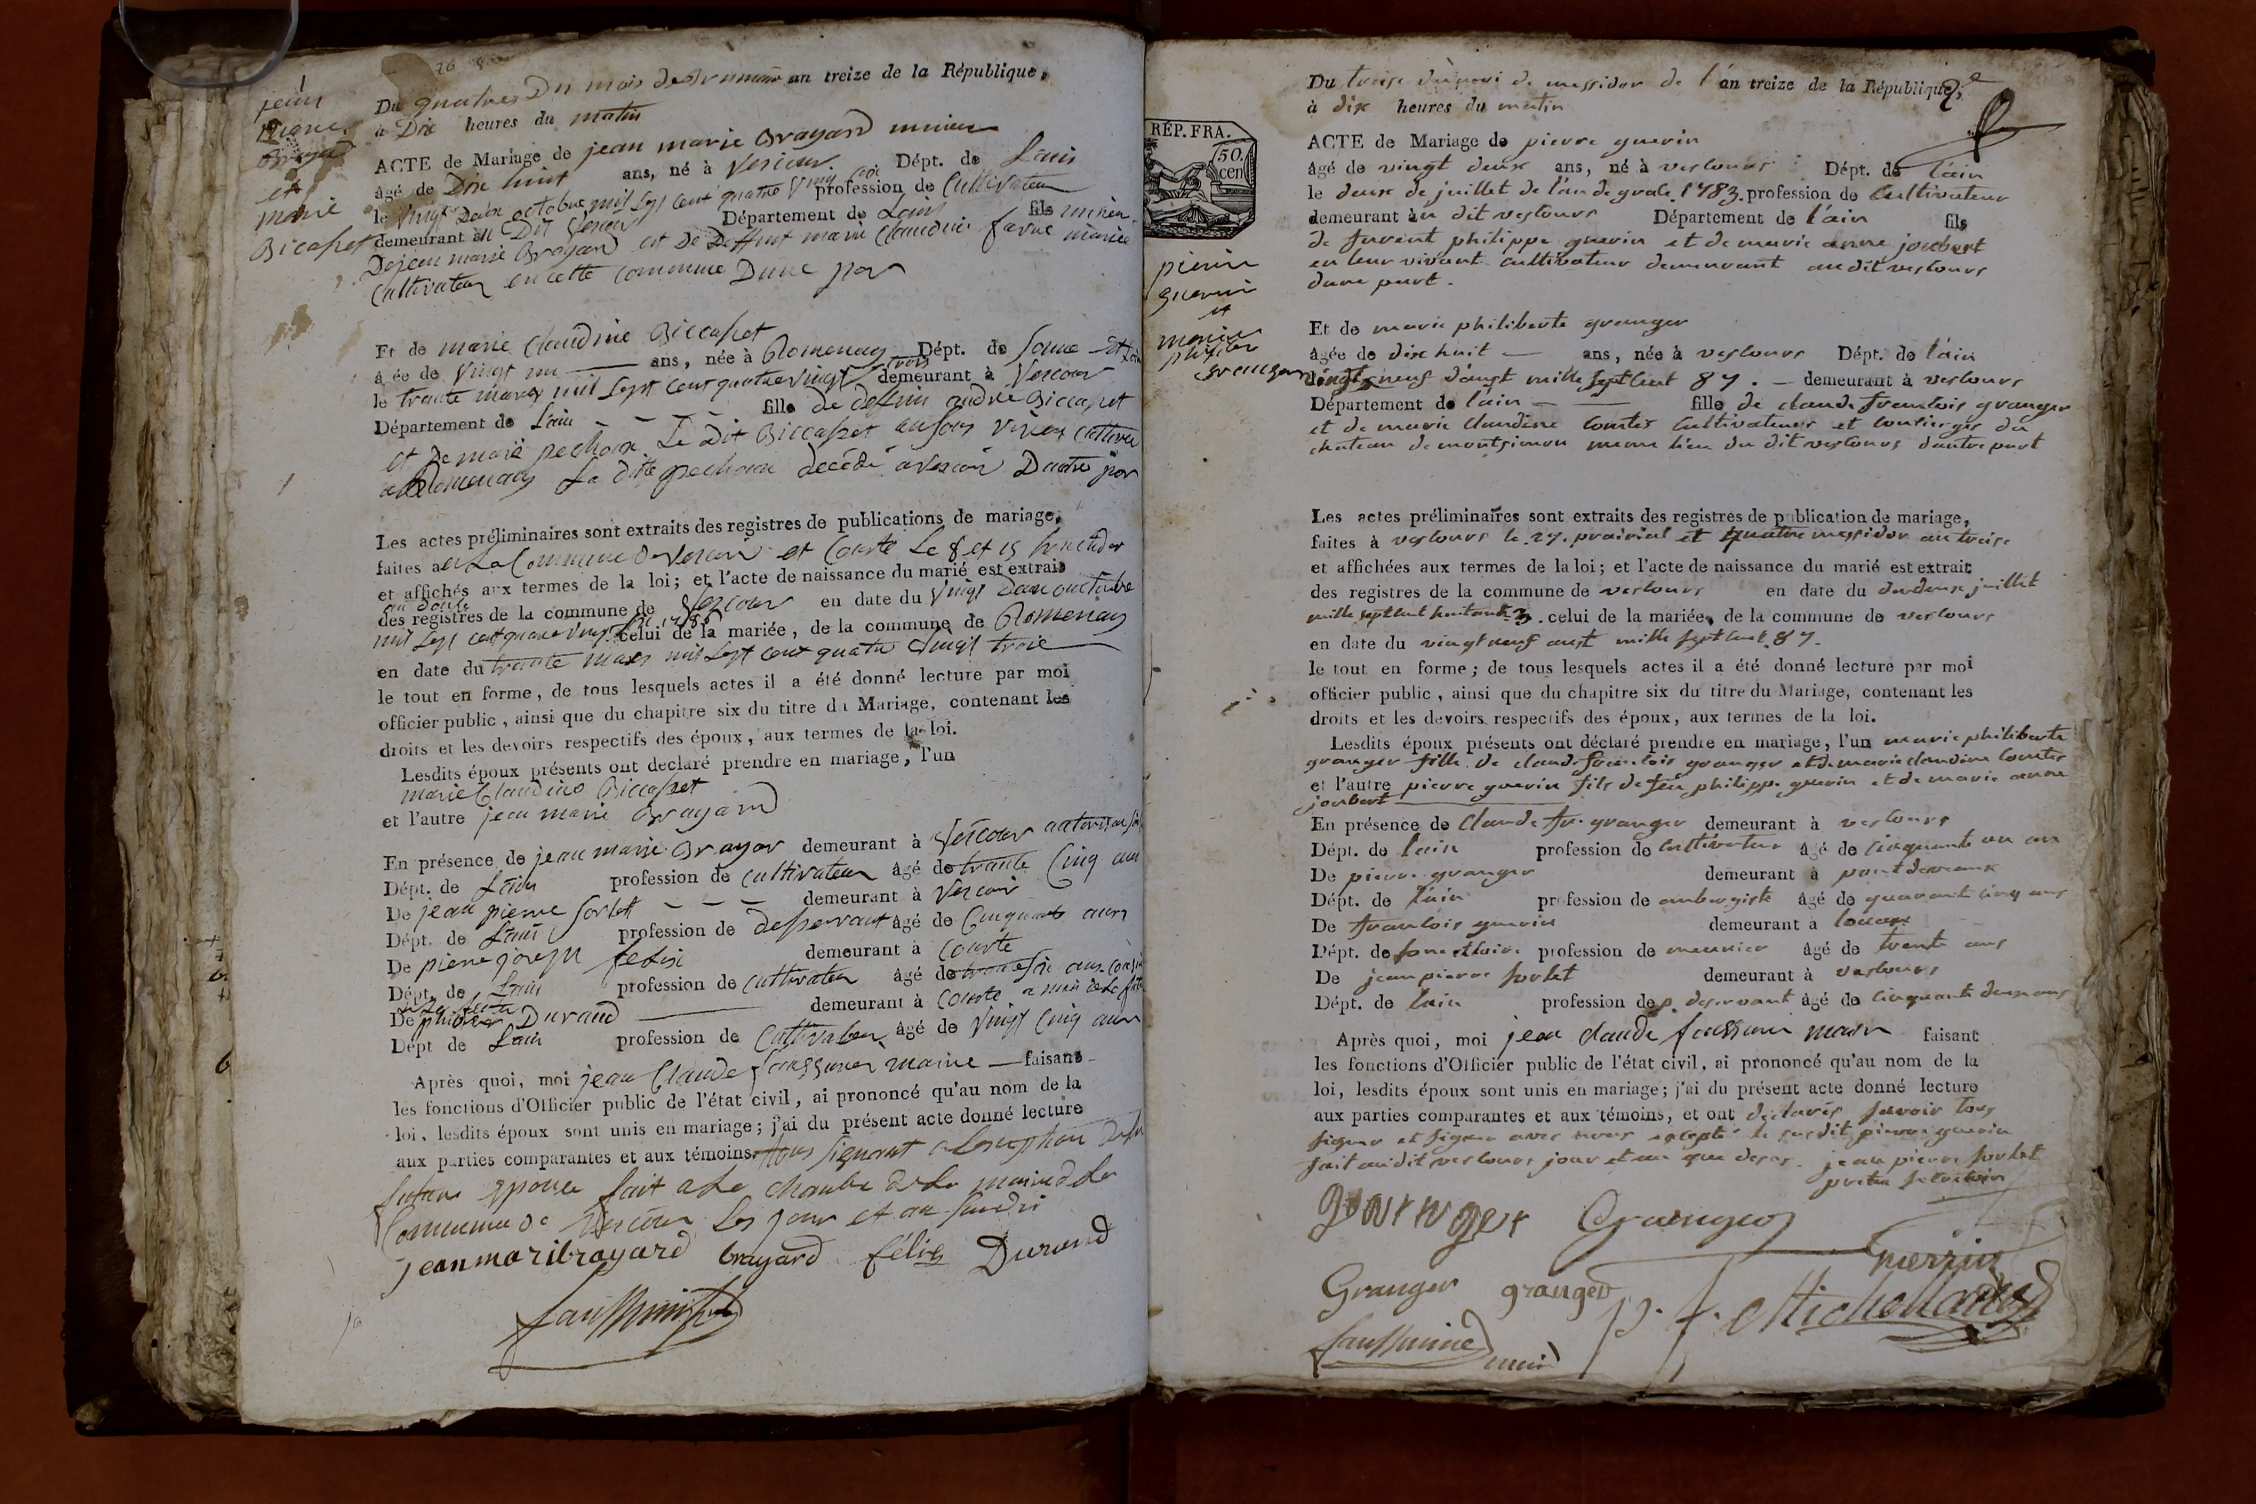 jean
marie
Brayard
et
marie
Bicaset
Du quatres Du mois de Brumaire an treize de la République,
à Dix heures du matin
ACTE de Mariage de jean marie Brayard mineur
âgé de Dix huit ans, né à Vescour Dépt. de Lain
le Vingt Deux octobre mil sept cent quatre Vingt six profession de Cultivateur
demeurant au Dit Vescour Département de Lain fils mineur
De jean marie Brayard et De Deffunt marie Claudine favre mariée
Cultivateur en cette commune Dune par
Et de marie Claudine Biccaset
âgée de Vingt un ans, née à Romenay Dépt. de Saone et Loire
le trante mars mil sept cent quatre vingt trois demeurant à Vescour
Département de Lain fille de defun andré Biccaset
et De marie pechoux Le Dit Biccaset
a Romenay La dite pechoux décédé a Vescour Dautre par
Les actes préliminaires sont extraits des registres de publications de mariage,
faites à La Commune De Vescour et Courte Le 8 et 15
et affichés aux termes de la loi; et l'acte de naissance du marié est extrait
des registres de la commune de Vescour en date du Vingt Deux octobre
mil sept cent quatre vingt six celui de la mariée, de la commune de Romenay
en date du trante mars mil sept cent quatre vingt trois
le tout en forme, de tous lesquels actes il a été donné lecture par moi
officier public, ainsi que du chapitre six du titre du Mariage, contenant les
droits et les devoirs respectifs des époux, aux termes de la loi.
Lesdits époux présents ont declaré prendre en mariage, l'un
marie Claudine Biccaset
et l'autre jean marie Brayard
En présence de jean marie Brayar demeurant à Vescour
Dépt. de Lain profession de cultivateur âgé de trante Cinq ans
De jean pierre Sorlet demeurant à Vescour
Dépt. de Lain profession de desservant âgé de Cinquante ans
De pierre joseph felix demeurant à Courte
Dépt. de Lain profession de cultivateur âgé de trante six ans
De Durand demeurant à Courte
Dépt de Lain profession de Cultivateur âgé de Vingt Cinq ans
Après quoi, moi jean Claude faussurier maire faisant
les fonctions d'Officier public de l'état civil, ai prononcé qu'au nom de la
loi, lesdits époux sont unis en mariage; j'ai du présent acte donné lecture
aux parties comparantes et aux témoins. tous signant a Lexseption De la
future epouse fait a La chambre de La mairie de La
Commune De Vescour Les jour et an susdit
jean mari brayard brayard félix Durand
RÉP. FRA.
50.
cen
pierre
guerin
et
marie
philiber
granger
Du treise du moi de messidor de l'an treize de la République,
à dix heures du matin
ACTE de Mariage de pierre guerin
âgé de vingt deux ans, né à vescours Dépt. de l'ain
le deux de juillet de l'an de grace 1783. profession de Cultivateur
demeurant au dit vescours Département de l'ain fils
de furent philippe guerin et de marie anne joubert
en leur vivant cultivateur demeurant au dit vescours
dune part.
Et de marie philiberte granger
âgée de dix huit ans, née à vescours Dépt. de l'ain
vingt neuf d'aust mille sept cent 87. demeurant à vescours
Département de l'ain fille de claude francois granger
et de marie claudine Comtet Cultivateurs et concierges du
chateau de montsimon meme lieu du dit vescours dautre part
Les actes préliminaires sont extraits des registres de publication de mariage,
faites à vescours le 27. prairial et quatre messidor an treise
et affichées aux termes de la loi; et l'acte de naissance du marié est extrait
des registres de la commune de vescours en date du deux juillet
mille sept cent huitante 3. celui de la mariée, de la commune de vescours
en date du vingt neuf aust mille sept cent 87.
le tout en forme; de tous lesquels actes il a été donné lecture par moi
officier public, ainsi que du chapitre six du titre du Mariage, contenant les
droits et les devoirs respectifs des époux, aux termes de la loi.
Lesdits époux présents ont déclaré prendre en mariage, l'un marie philiberte
granger fille de claude francois granger et de marie claudine Comtet
et l'autre pierre guerin fils de feu philippe guerin et de marie anne
joubert
En présence de Claude fr. granger demeurant à vescours
Dépt. de lain profession de Cultivateur âgé de cinquante un an
De pierre granger demeurant à pont devaux
Dépt. de l'ain profession de aubergiste âgé de quarante cinq ans
De francois guerin demeurant à
Dépt. de sone et loire profession de meunier âgé de trente ans
De jean pierre sorlet demeurant à vescours
Dépt. de lain profession de p. deservant âgé de cinquante deux ans
Après quoi, moi jean claude faussurier maire faisant
les fonctions d'Officier public de l'état civil, ai prononcé qu'au nom de la
loi, lesdits époux sont unis en mariage; j'ai du présent acte donné lecture
aux parties comparantes et aux témoins, et ont declarés savoir tous
signer et signer avec nous excepté le susdit pierre guerin
fait au dit vescours jour et an que desus. jean pierre sorlet
granger Granger
Granger granger
maire